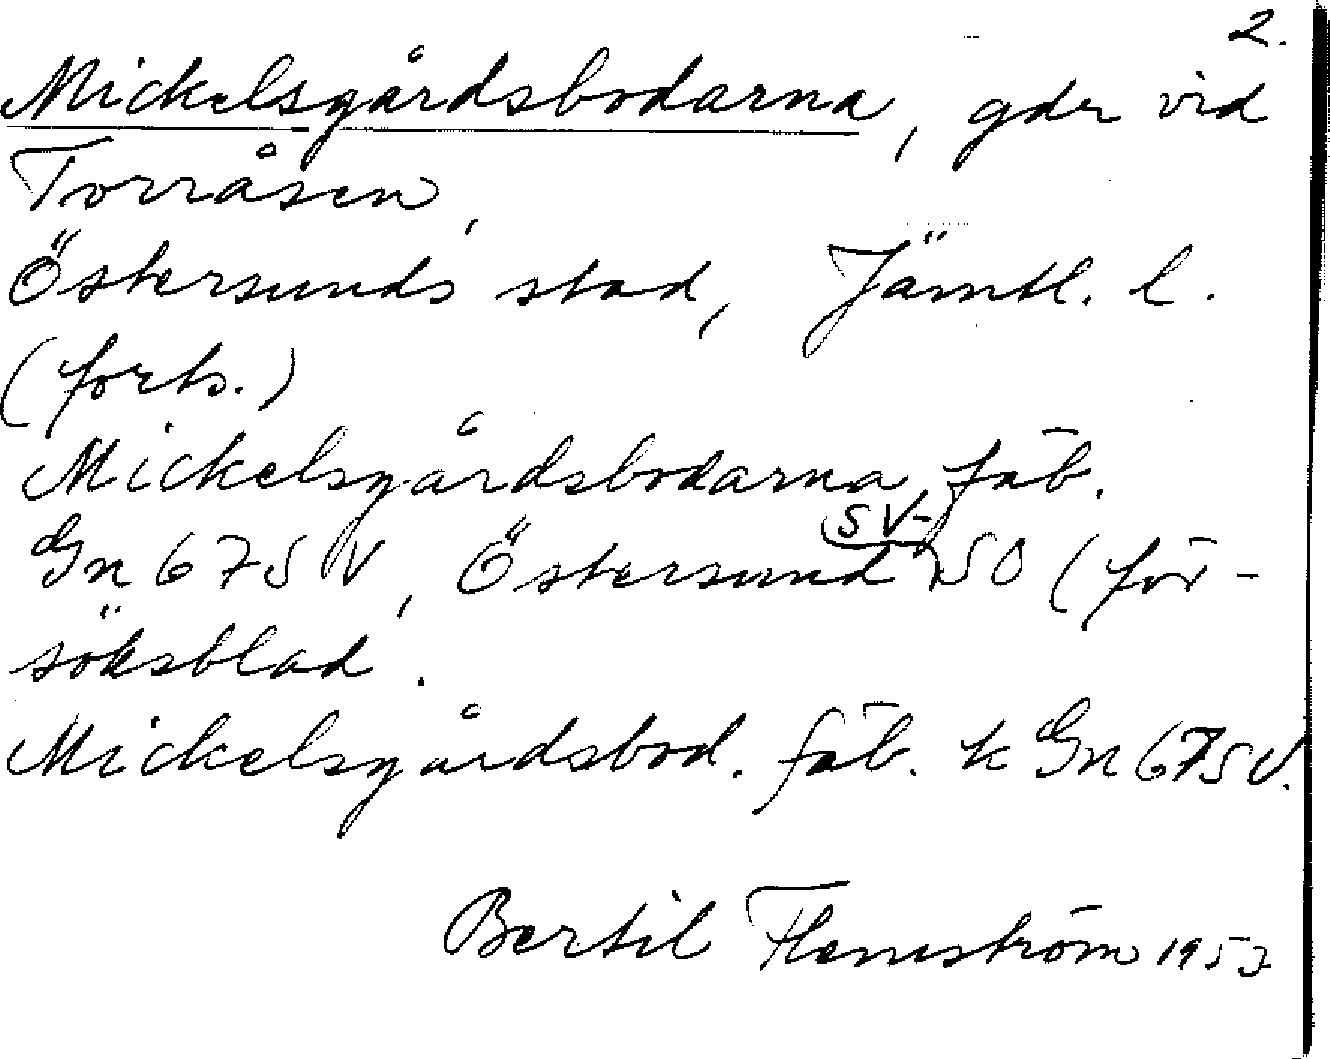 2.
Mickelsgårdsbodarna, gdr vid
Torråsen,
Östersunds stad, Jämtl. l.
(forts.)
Mickelsgårdsbodarna, fäb.
SV-
Gn 67 SV, Östersund SO (för-
söksblad.
Mickelsgårdsbod. fäb. k Gn 67 SV.
Bertil Flemström 1953